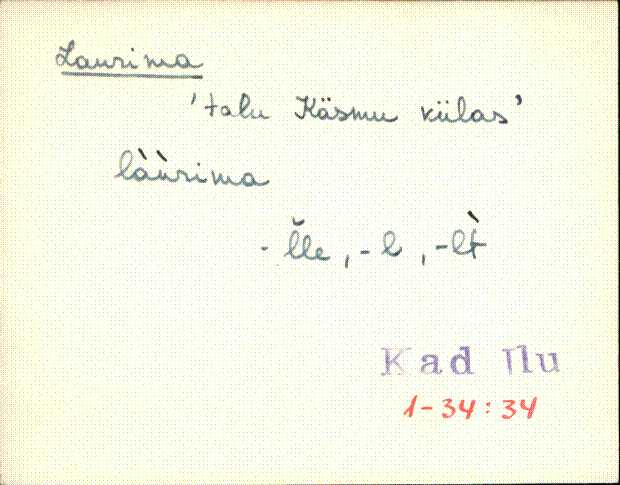 Laurima
'talu Käsmu külas'
là̀ùrima
- l̆le, -l, -lt̀
Kad Ilu
1-34:34